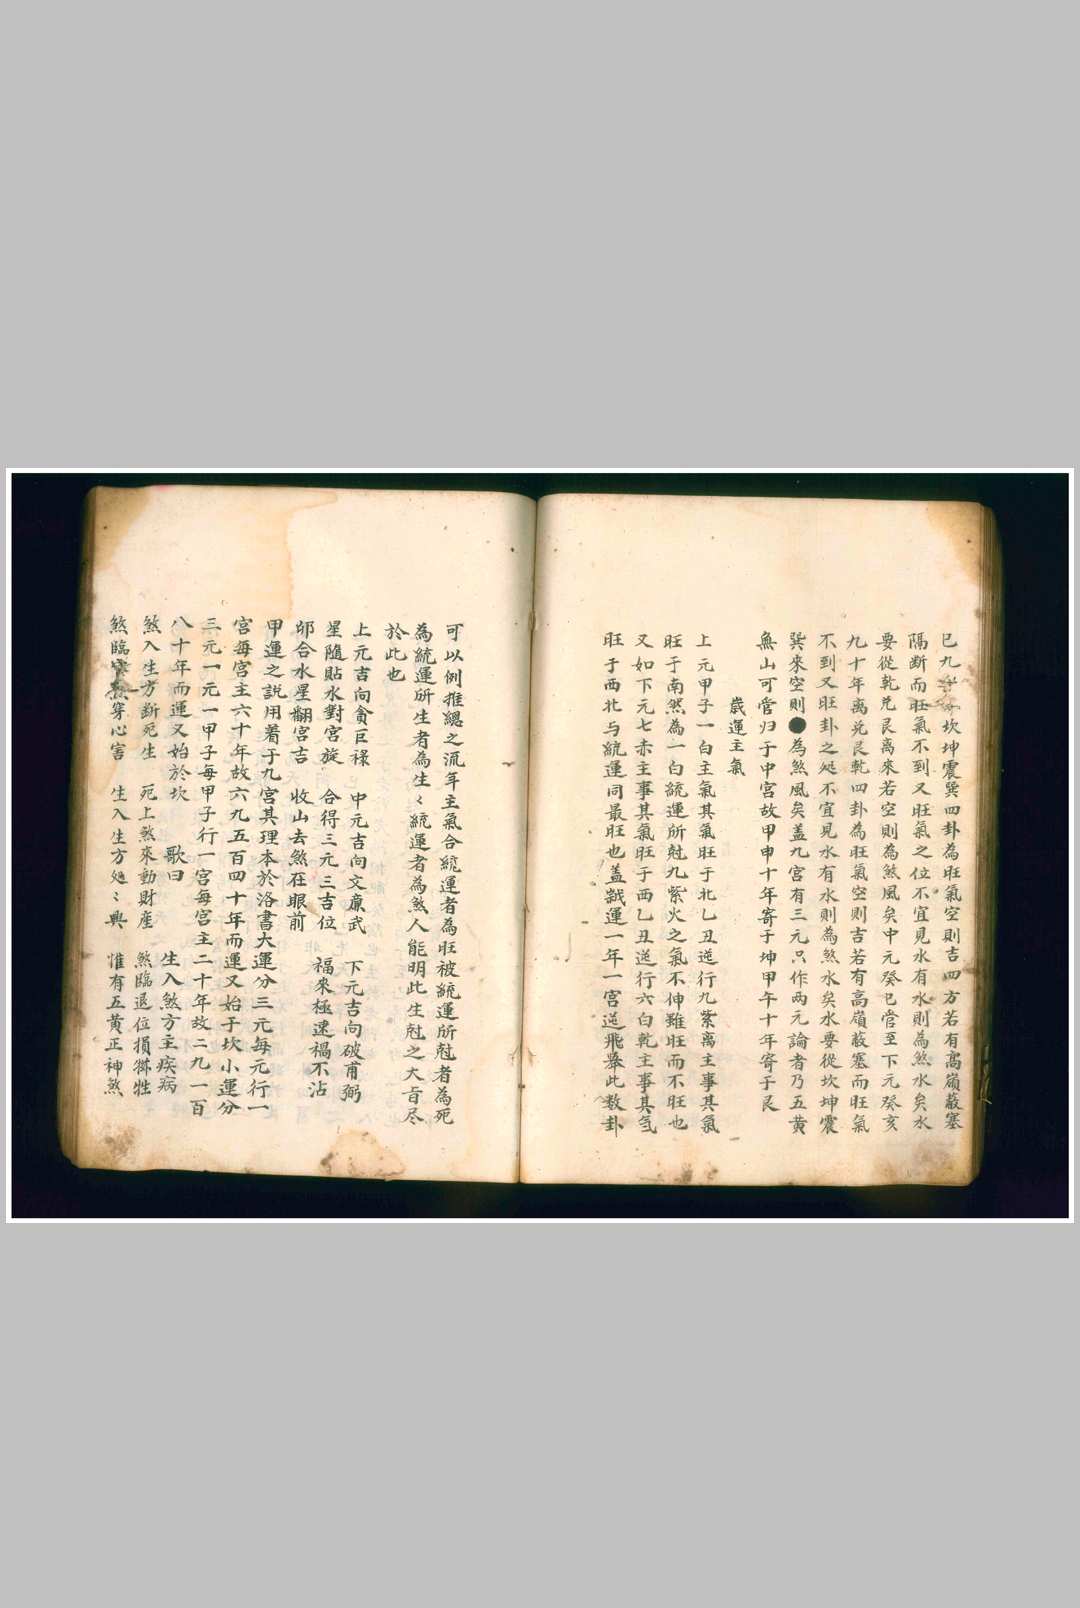 巳九十年坎坤震巽四卦為旺氣空則吉四方若有高嶺蔽塞
隔断而旺氣不到又旺氣之位不宜見水有水則為煞水矣水
要從乾兑艮离來若空則為煞風矣中元癸巳管至下元癸亥
九十年离兑艮乾四卦為旺氣空則吉若有高嶺蔽塞而旺氣
不到又旺卦之処不宜見水有水則為煞水矣水要從坎坤震
巽來空則為煞風矣盖九宮有三元只作两元論者乃五黄
無山可管归于中宮故甲申十年寄于坤甲午十年寄于艮
歲運主氣
上元甲子一白主氣其氣旺于北乙丑逆行九紫离主事其氣
旺于南然為一白統運所尅九紫火之氣不伸雖旺而不旺也
又如下元七赤主事其氣旺于西乙丑逆行六白乾主事其气
旺于西北与統運同最旺也盖歲運一年一宮逆飛舉此数卦
可以例推總之流年主氣合統運者為旺被統運所尅者為死
為統運所生者為生〻統運者為煞人能明此生尅之大旨尽
於此也
上元吉向貪巨禄 中元吉向文廉武 下元吉向破甫弼
星隨貼水對宮旋 合得三元三吉位 福來極速禍不沾
郘合水星翻宮吉 收山去煞在眼前
甲運之説用着于九宮其理本於洛書大運分三元每元行一
宮每宮主六十年故六九五百四十年而運又始于坎小運分
三元一元一甲子每甲子行一宮每宮主二十年故二九一百
八十年而運又始於坎 歌曰 生入煞方主疾病
煞入生方断死生 死上煞來動財産 煞臨退位損犠牲
煞臨煞穿心害 生入生方処〻興 惟有五黄正神煞